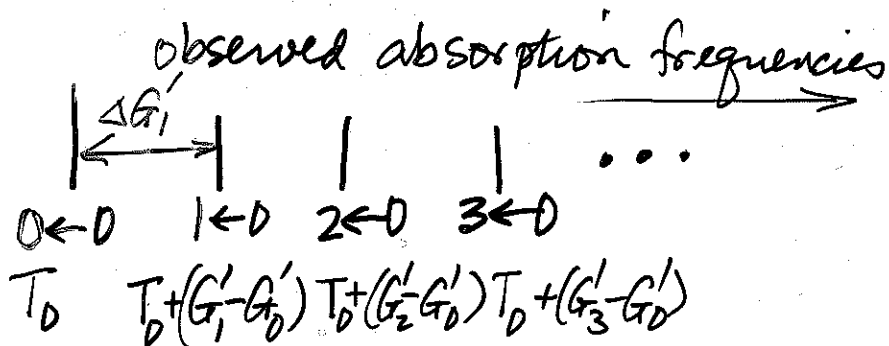 observed absorption frequencies
ΔG₁′
...
0←0 1←0 2←0 3←0
T₀ T₀+(G₁′-G₀′) T₀+(G₂′-G₀′) T₀+(G₃′-G₀′)